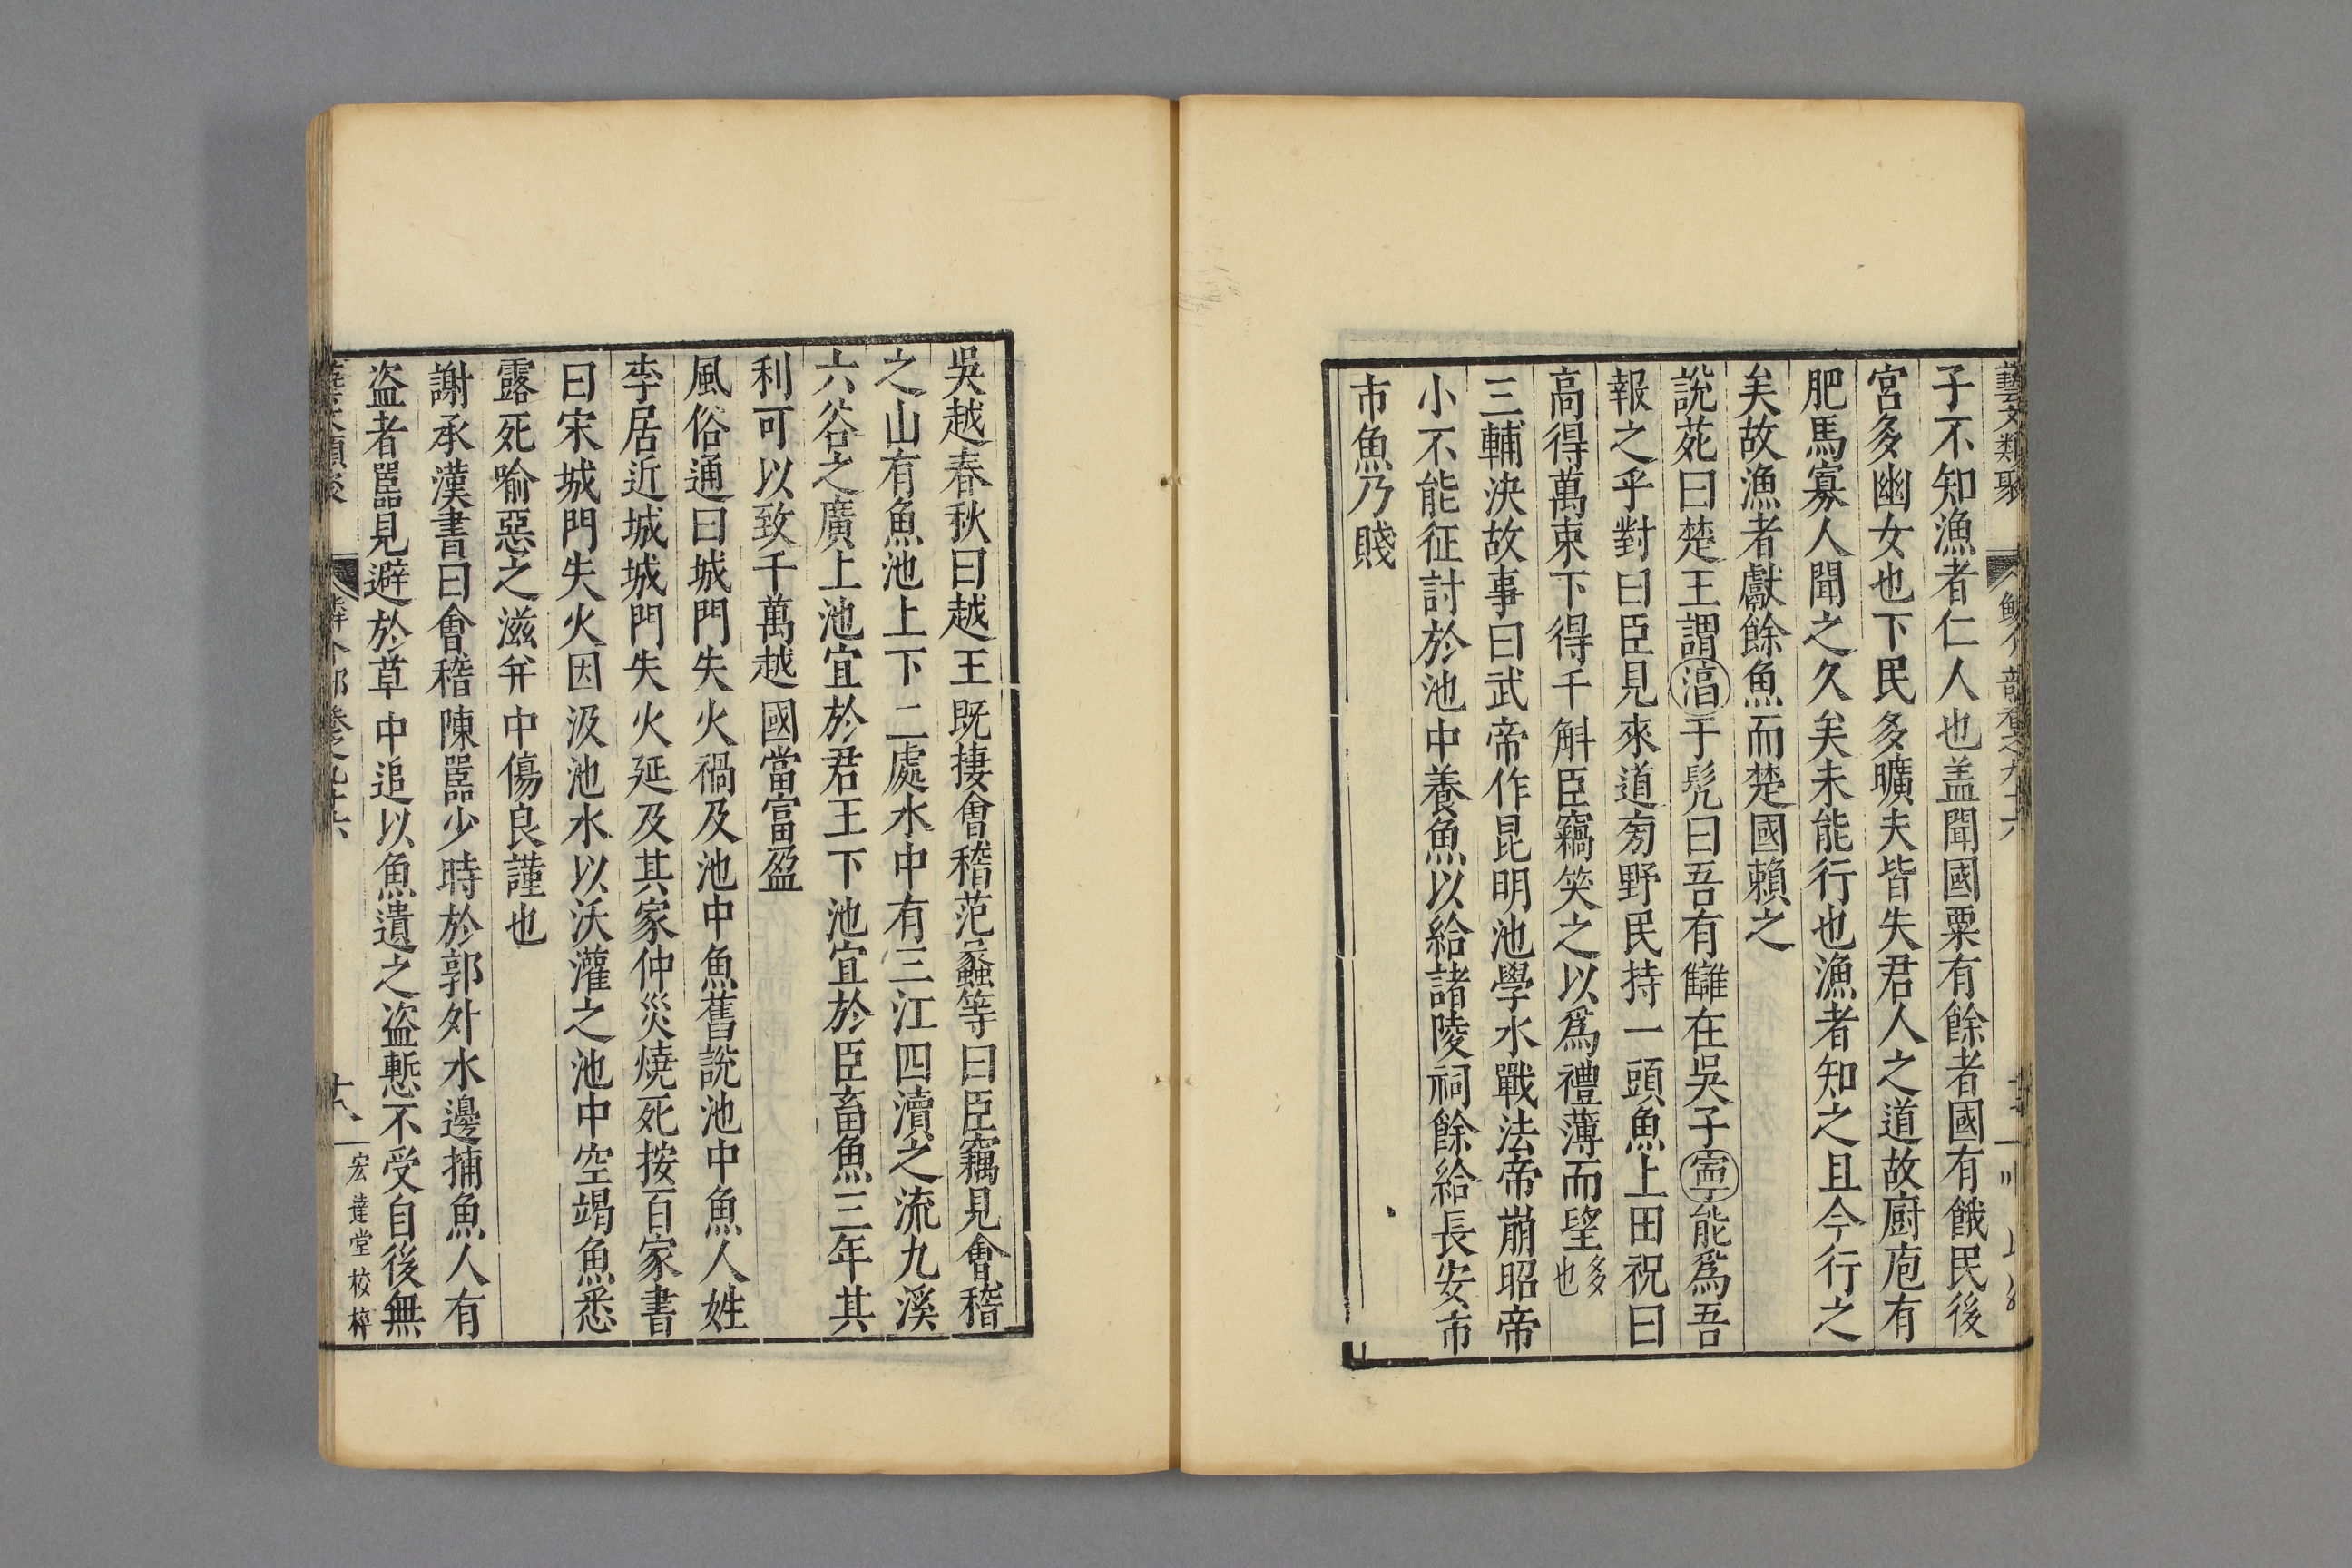 藝文類聚 鱗介部卷之九十六
子不知漁者仁人也盖聞國粟有餘者國有餓民後
宮多幽女也下民多曠夫皆失君人之道故廚庖有
肥馬寡人聞之久矣未能行也漁者知之且今行之
矣故漁者獻餘魚而楚國賴之
說苑曰楚王謂淳于髠曰吾有讎在吳子寧能爲吾
報之乎對曰臣見來道旁野民持一頭魚上田祝曰
高得萬束下得千斛臣竊笑之以爲禮薄而望多也
三輔決故事曰武帝作昆明池學水戰法帝崩昭帝
小不能征討於池中養魚以給諸陵祠餘給長安市
市魚乃賤
吳越春秋曰越王既捿會稽范蠡等曰臣竊見會稽
之山有魚池上下二處水中有三江四瀆之流九溪
六谷之廣上池宜於君王下池宜於臣畜魚三年其
利可以致千萬越國當富盈
風俗通曰城門失火禍及池中魚舊說池中魚人姓
李居近城城門失火延及其家仲災燒死按百家書
曰宋城門失火因汲池水以沃灌之池中空竭魚悉
露死喻惡之滋并中傷良謹也
謝承漢書曰會稽陳囂少時於郭外水邊捕魚人有
盜者囂見避於草中追以魚遺之盜慙不受自後無
藝文類聚 鱗介部卷之九十六 宏達堂校梓